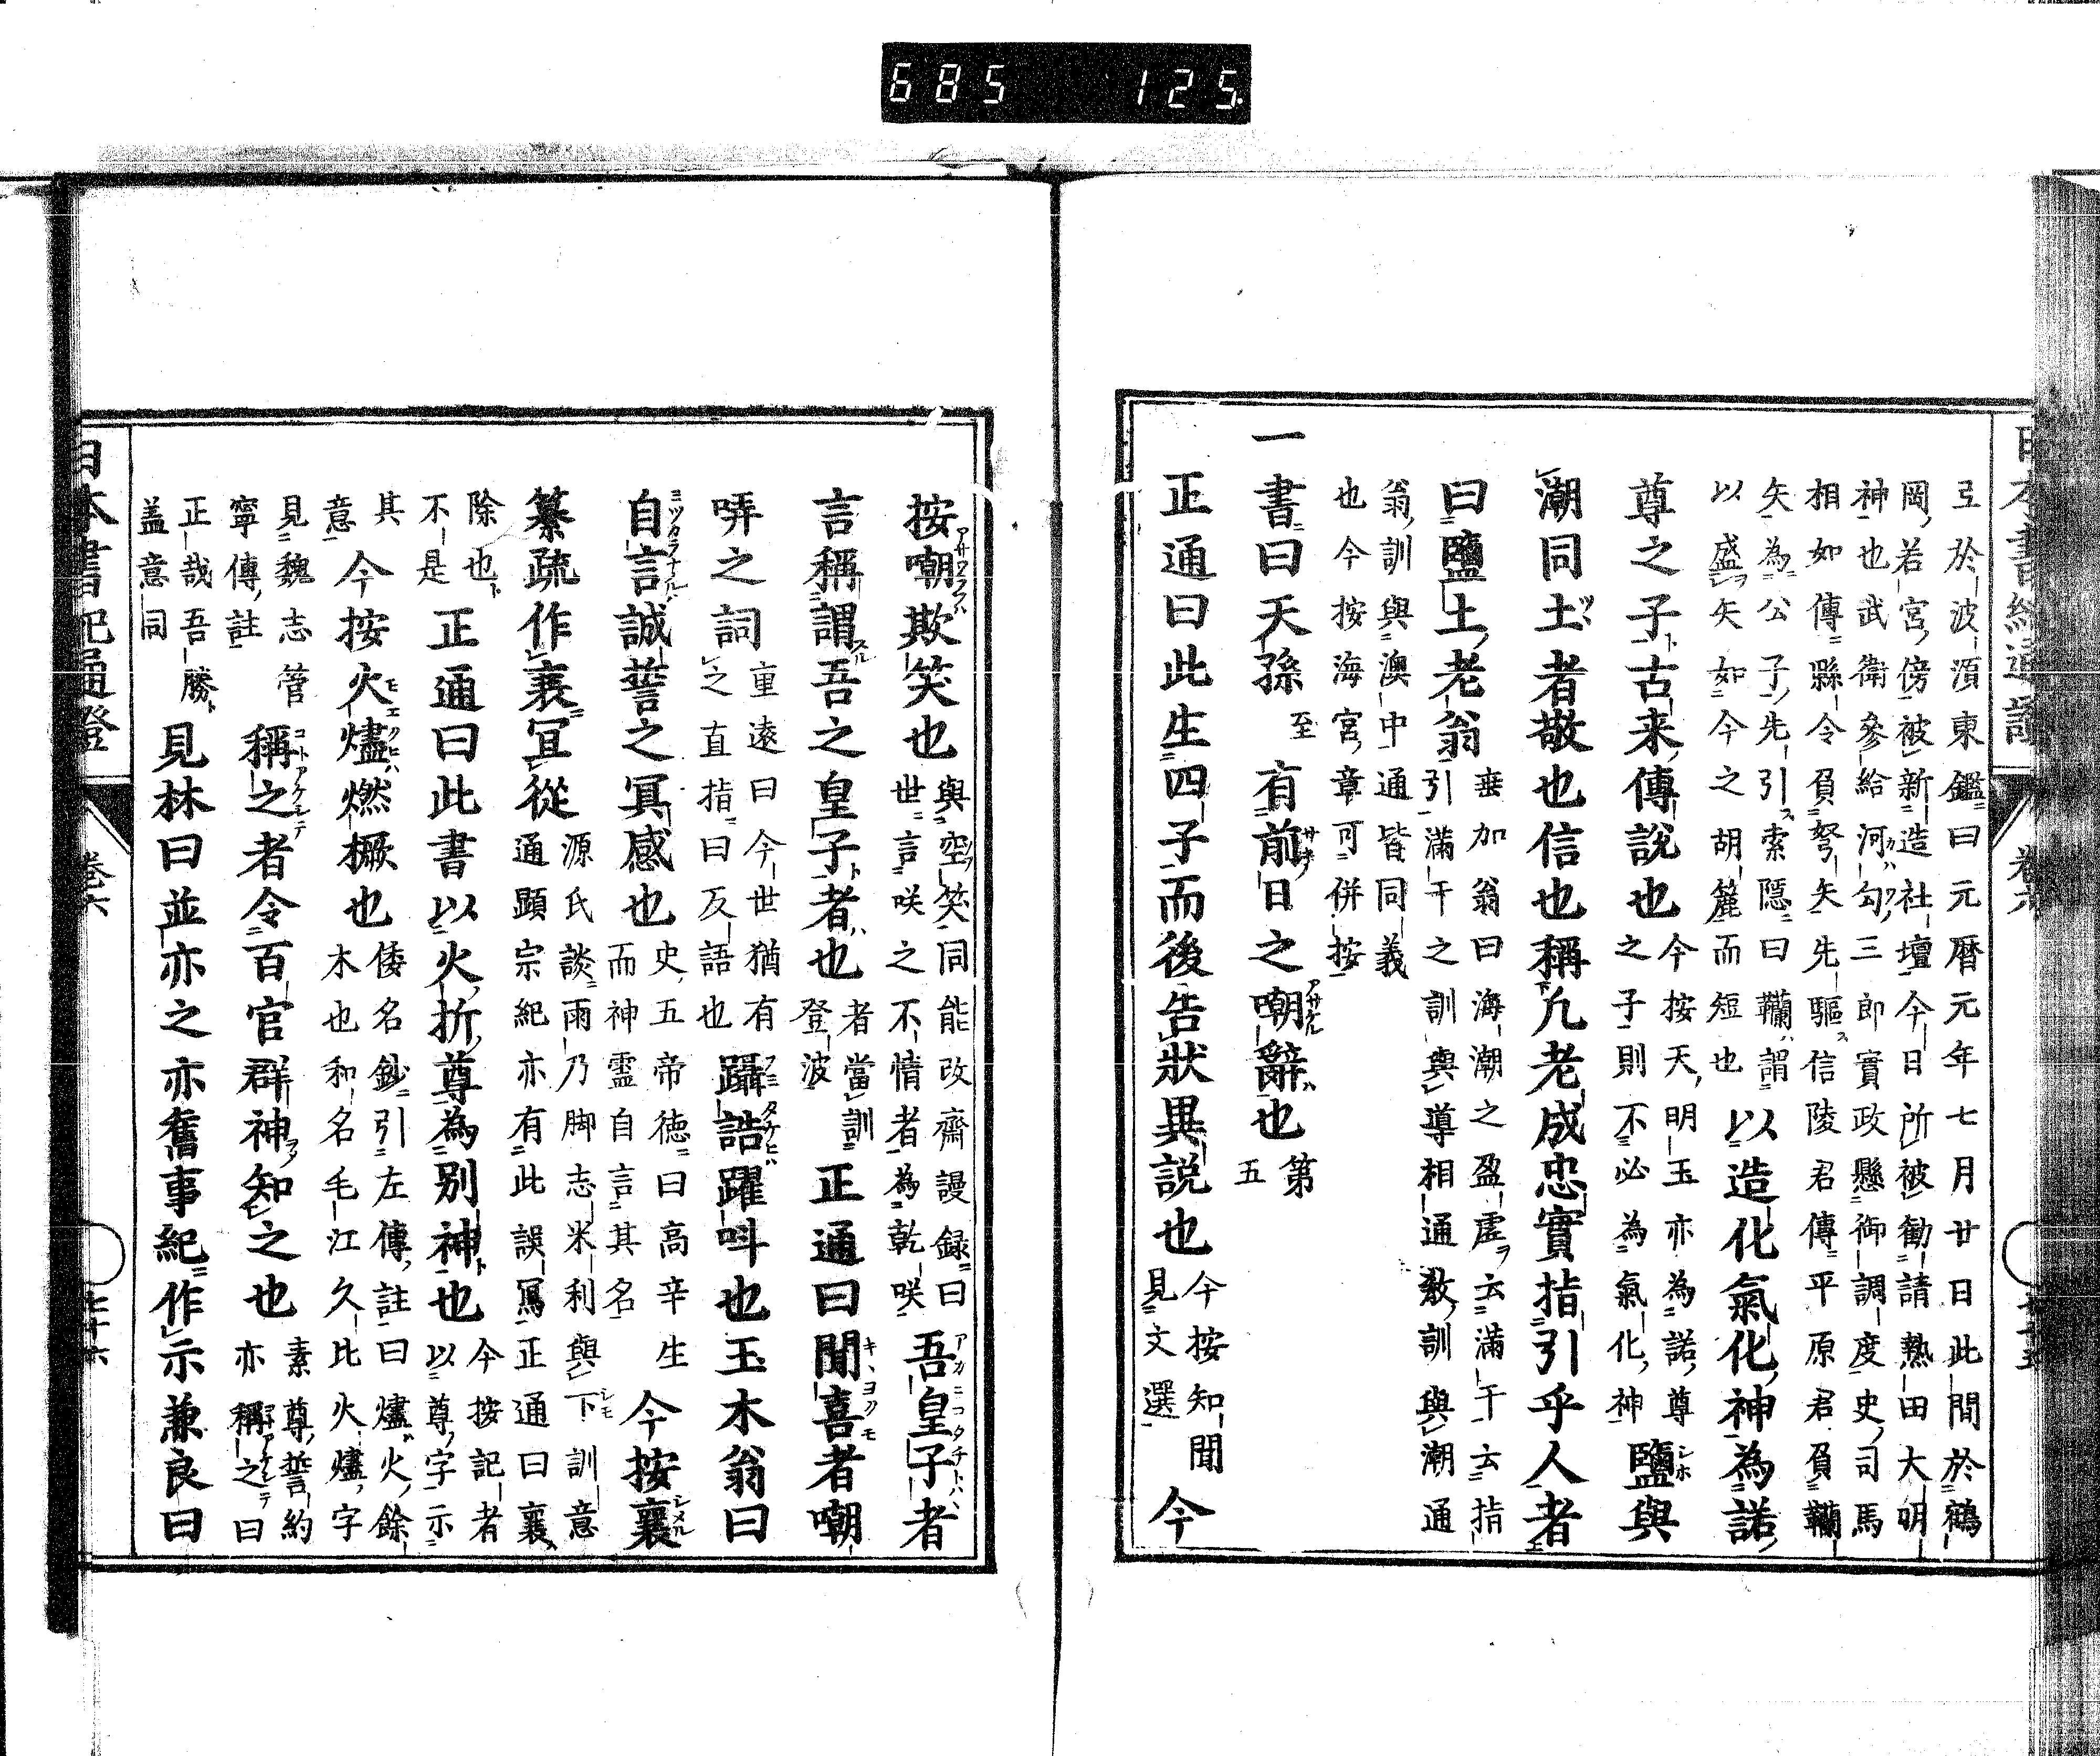 685 125
彑於波湏東鑑曰元暦元年七月廿日此間於鶴
岡若宮傍被新造社壇今日所被勧請熱田大明
神也武衛參給河勾三郎實政懸御調度史司馬
相如傳縣令負弩矢先驅信陵君傳平原君負韊
矢為公子先引索隠曰韊謂
以盛矢如今之胡簏而短也
以造化氣化神為諾
尊之子古来傳說也
今按天明玉亦為諾尊
之子則不必為氣化神
鹽與
潮同土者敬也信也稱凢老成忠實指引乎人者
曰鹽土老翁
垂加翁曰海潮之盈虚云滿干云指
引滿干之訓與導相通教訓與潮通
翁訓與澳中通皆同義
也今按海宮章可併按
一書曰天孫
至
有前日之嘲辭也
第五
正通曰此生四子而後告狀異説也
今按知聞
見文選
今
按嘲欺笑也
與空笑同能改齋謾録曰
世言咲之不情者為乾咲
吾皇子者
言稱謂吾之皇子者也
者當訓
登波
正通曰聞喜者嘲
哢之詞
重遠曰今世猶有
之直指曰反語也
躡誥躍呌也玉木翁曰
自言誠誓之冥感也
史五帝徳曰高辛生
而神靈自言其名
今按襄
纂疏作裏冝從
源氏談雨乃脚志米利與下訓意
通顯宗紀亦有此誤寫正通曰襄
除也
不是
正通曰此書以火折尊為別神也
今按記者
以尊字示
其
意
今按火燼燃橛也
倭名鈔引左傳註曰燼火餘
木也和名毛江久比火燼字
見魏志管
寧傳註
稱之者令百官群神知之也
素尊誓約
亦稱之曰
正哉吾勝
盖意同
見林曰並亦之亦舊事紀作示兼良曰
日本書紀通證
卷六
七十六